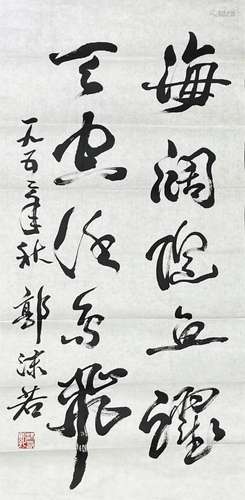 海阔随鱼跃
天空任鸟飞
一九五二年秋 郭沫若